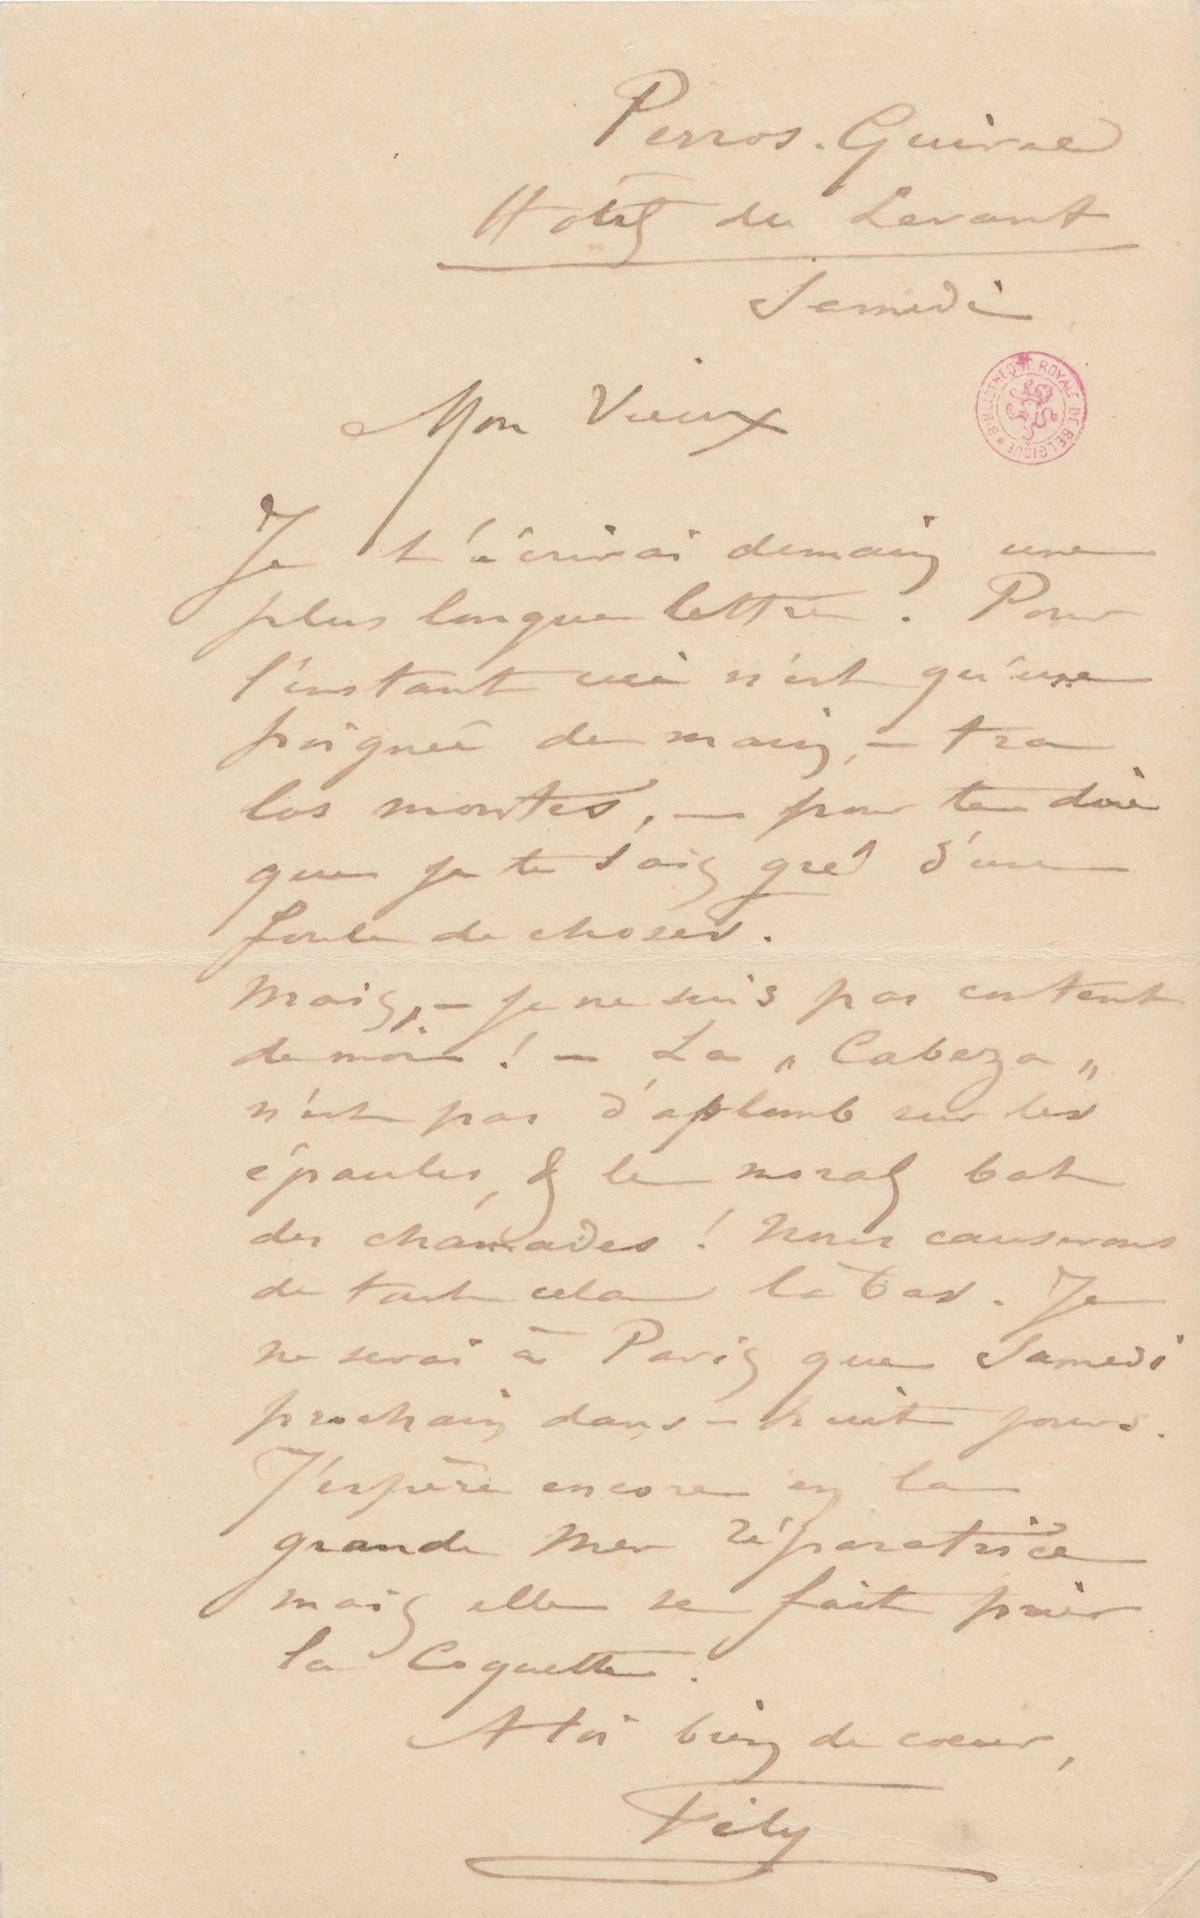 Perros-Guirec
Hôtel du Levant
Samedi
BIBLIOTHÈQUE ROYALE DE BELGIQUE
Mon Vieux
Je t'écrirai demain une
plus longue lettre. Pour
l'instant ceci n'est qu'une
poignée de main, – tra
los montes, – pour te dire
que je te sais gré d'une
foule de choses.
Mais, – je ne suis pas content
de moi ! – La „ Cabeza „
n'est pas d'aplomb sur les
épaules, & le moral bat
des chamades ! Nous causerons
de tout cela là bas. Je
ne serai à Paris que Samedi
prochain dans – huit jours.
J'espère encore en la
grande Mer réparatrice
mais elle se fait prier
la Coquette.
A toi bien de coeur,
Fély